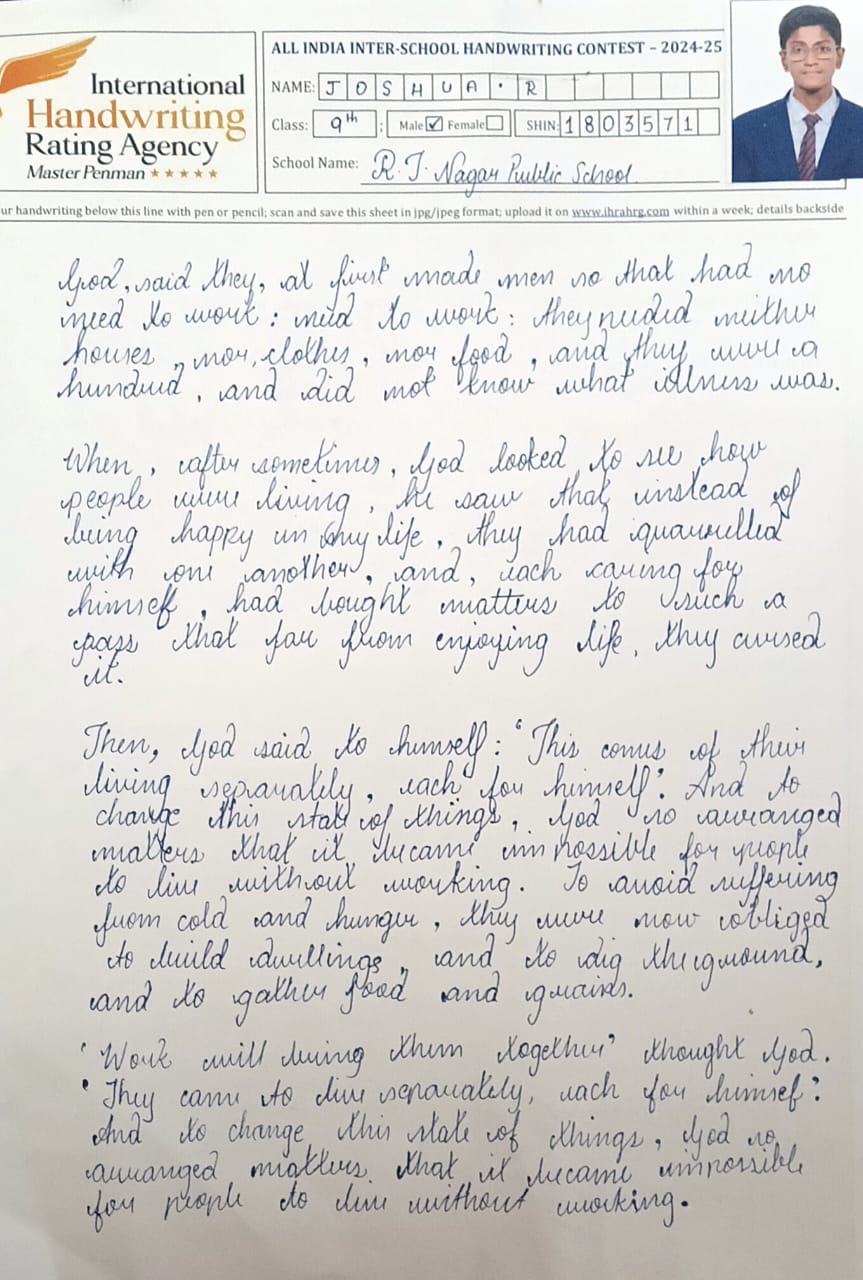 International
Handwriting
Rating Agency
Master Penman ★★★★★
ALL INDIA INTER-SCHOOL HANDWRITING CONTEST – 2024-25
NAME: JOSHUA. R
Class: 9th ; Male ☑ Female ☐ SHIN: 1803571
School Name: R.T. Nagar Public School
ur handwriting below this line with pen or pencil; scan and save this sheet in jpg/jpeg format; upload it on www.ihrahrg.com within a week; details backside
God, said they, at first made men so that had no
need to work : need to work : they needed neither
houses, nor, clothes, nor food, and they were a
hundred, and did not know what illness was.
When, after sometimes, God looked to see how
people were living, he saw that instead of
being happy in life, they had quarrelled
with one another, and, each caring for
himself, had bought matters to such a
pass that far from enjoying life, they cursed
it.
Then, God said to himself : 'This comes of their
living separately, each for himself'. And to
change this state of things, God so arranged
matters that it became impossible for people
to live without working. To avoid suffering
from cold and hunger, they were now obliged
to build dwellings, and to dig the ground,
and to gather food and grains.
'Work will bring them together' thought God.
'They came to live separately, each for himsef'.
And to change this state of things, God so
arranged matters that it became impossible
for people to live without working.